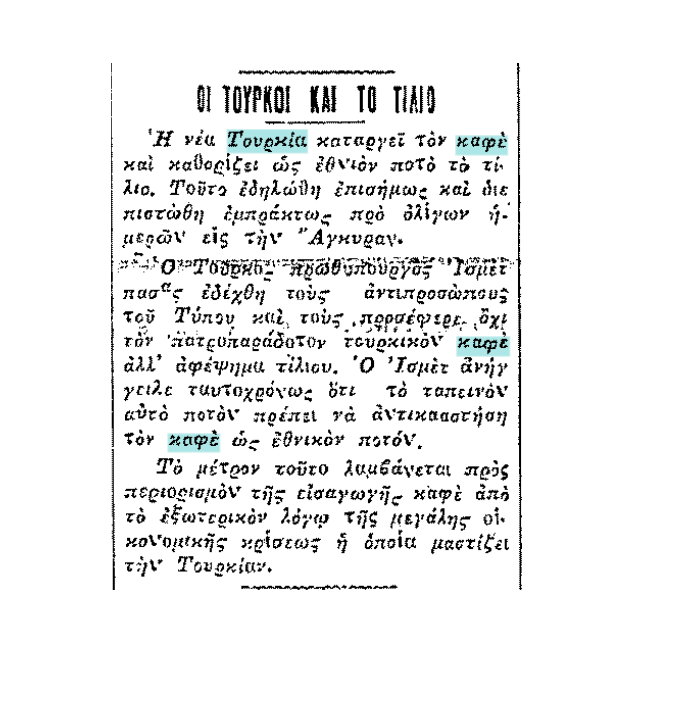 ΟΙ ΤΟΥΡΚΟΙ ΚΑΙ ΤΟ ΤΙΛΙΟ
Ἡ νέα Τουρκία καταργεῖ τὸν καφὲ
καὶ καθορίζει ὡς ἐθνιὸν ποτὸ τὸ τί-
λιο. Τοῦτο ἐδηλώθη ἐπισήμως καὶ διε
πιστώθη ἐμπράκτως πρὸ ὀλίγων ἡ-
μερῶν εἰς τὴν Ἄγκυραν.
Ὁ Τοῦρκος πρωθυπουργὸς Ἰσμὲτ
πασᾶς ἐδέχθη τοὺς ἀντιπροσώπους
τοῦ Τύπου καὶ τοὺς προσέφερε ὄχι
τὸν πατροπαράδοτον τουρκικὸν καφὲ
ἀλλ' ἀφέψημα τίλιου. Ὁ Ἰσμὲτ ἀνήγ
γειλε ταυτοχρόνως ὅτι τὸ ταπεινὸν
αὐτὸ ποτὸν πρέπει νὰ ἀντικαταστήση
τὸν καφὲ ὡς ἐθνικὸν ποτόν.
Τὸ μέτρον τοῦτο λαμβάνεται πρὸς
περιορισμὸν τῆς εἰσαγωγῆς καφὲ ἀπὸ
τὸ ἐξωτερικὸν λόγῳ τῆς μεγάλης οἰ-
κονομικῆς κρίσεως ἡ ὁποία μαστίζει
τὴν Τουρκίαν.